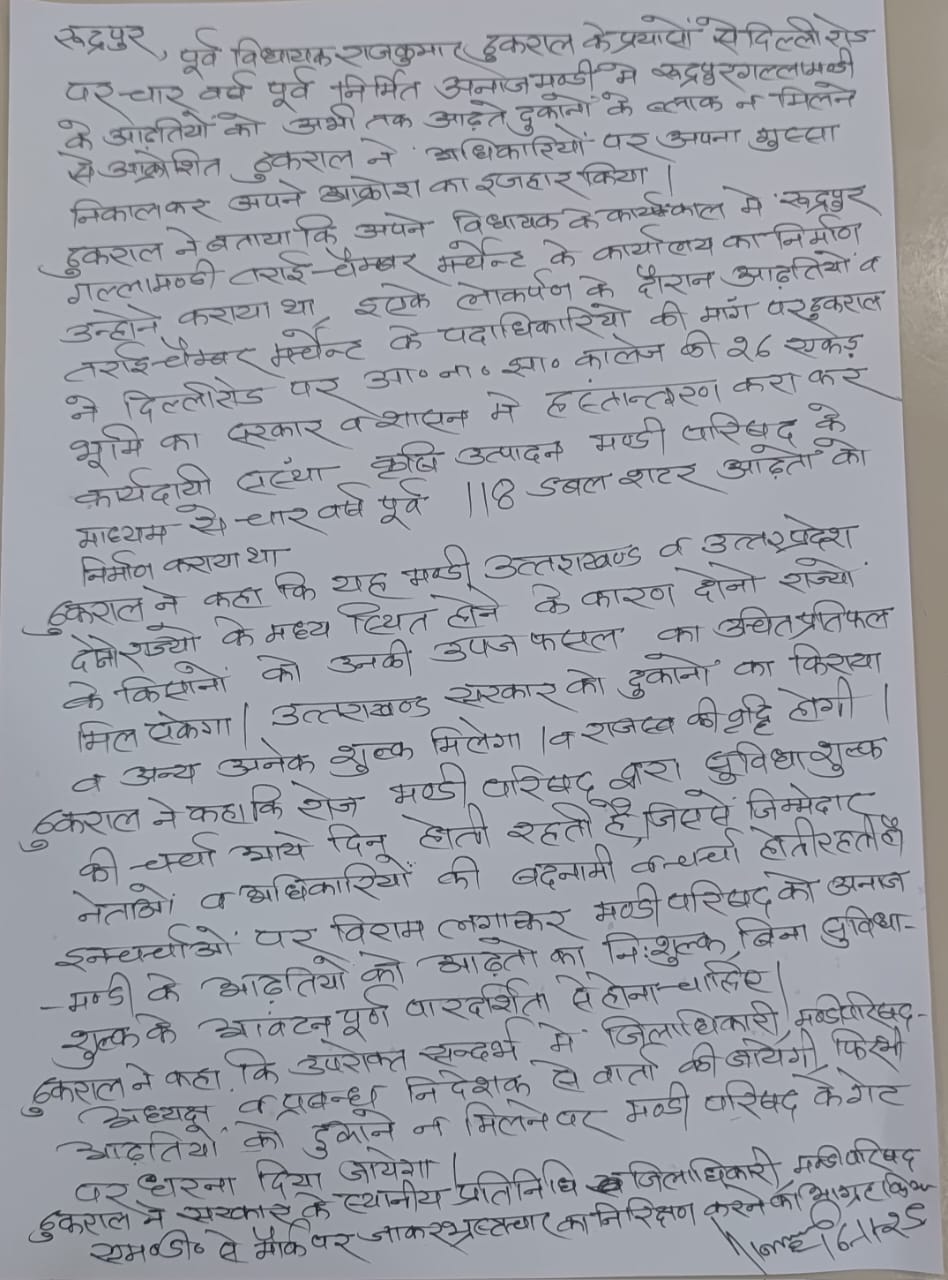 रूद्रपुर, पूर्व विधायक राजकुमार ठुकराल के प्रयासों से दिल्ली रोड
पर चार वर्ष पूर्व निर्मित अनाज मण्डी मे रूद्रपुर गल्लामण्डी
के आढ़तियों को अभी तक आढ़ते दुकानों के ब्लाक न मिलने
से आक्रोशित ठुकराल ने अधिकारियों पर अपना गुस्सा
निकालकर अपने आक्रोश का इजहार किया |
ठुकराल ने बताया कि अपने विधायक के कार्यकाल मे रूद्रपुर
गल्लामण्डी तराई चैम्बर मर्चेन्ट के कार्यालय का निर्माण
उन्होने कराया था इसके लोकर्पण के दौरान आढ़तियों व
तराई-चैम्बर मर्चेन्ट के पदाधिकारियो की माँग पर ठुकराल
ने दिल्लीरोड पर आ॰ ना॰ झा॰ कालेज की २६ एकड़
भूमि का सरकार व शासन मे हस्तान्तरण करा कर
कार्यदायी संस्था कृषि उत्पादन मण्डी परिषद के
माध्यम से चार वर्ष पूर्व 118 डबल शटर आढ़तो को
निर्माण कराया था
ठुकराल ने कहा कि यह मण्डी उत्तराखण्ड व उत्तरप्रदेश
दोनो राज्यो के मध्य स्थित होने के कारण दोनो राज्यों
के किसानों को उनकी उपज फसल का उचित प्रतिफल
मिल सकेगा | उत्तराखण्ड सरकार को दुकानों का किराया
व अन्य अनेक शुल्क मिलेगा | व राजस्व की वृद्दि होगी |
ठुकराल ने कहा कि रोज मण्डी परिषद द्वारा सुविधा शुल्क
की चर्चा आये दिन होती रहती है, जिससे जिम्मेदार
नेताओं व अधिकारियों की बदनामी व चर्चा होती रहती है
इन चर्चाओं पर विराम लगाकर मण्डी परिषद को अनाज
-मण्डी के आढ़तियो को आढ़तो का नि:शुल्क, बिना सुविधा-
शुल्क के आवंटन पूर्ण पारदर्शिता से होना चाहिए |
ठुकराल ने कहा कि उपरोक्त सन्दर्भ में जिलाधिकारी, मण्डी परिषद-
अध्यक्ष व प्रबन्ध निदेशक से वार्ता की जायेगी, फिर भी
आढ़तियो को दुकाने न मिलने पर मण्डी परिषद के गेट
पर धरना दिया जायेगा |
ठुकराल ने सरकार के स्थानीय प्रतिनिधि जिलाधिकारी, मण्डी परिषद
एम॰डी॰ से मौके पर जाकर भ्रष्टाचार का निरिक्षण करने का आग्रह किया